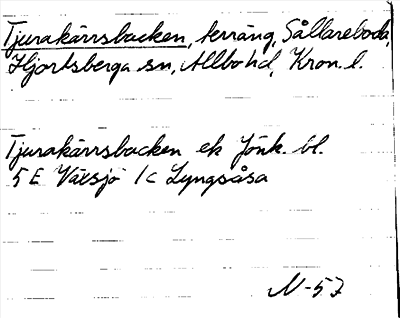 Tjurakärrsbacken, terräng, Sållareboda,
Hjortsberga sn, Allbo hd, Kron. l.
Tjurakärrsbacken ek Jönk. bl.
5 E Växsjö 1c Lyngsåsa
N-57